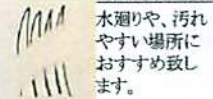 水廻りや、汚れ
やすい場所に
おすすめ致し
ます。